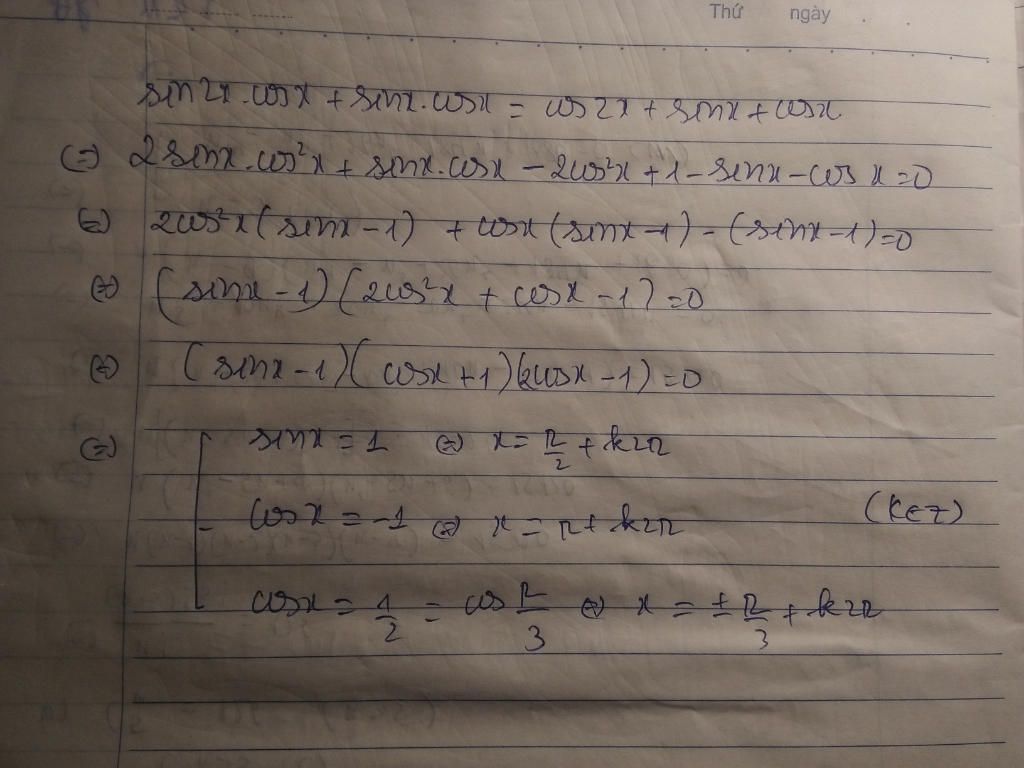 Thứ ngày . .
sin2x.cosx + sinx.cosx = cos2x + sinx + cosx
(=) 2sinx.cos²x + sinx.cosx - 2cos²x + 1 - sinx - cosx = 0
(=) 2cos²x(sinx - 1) + cosx(sinx - 1) - (sinx - 1) = 0
(=) (sinx - 1)(2cos²x + cosx - 1) = 0
(=) (sinx - 1)(cosx + 1)(2cosx - 1) = 0
(=) [ sinx = 1 (=) x = π/2 + k2π
cosx = -1 (=) x = π + k2π (k∈Z)
cosx = 1/2 = cos π/3 (=) x = ± π/3 + k2π